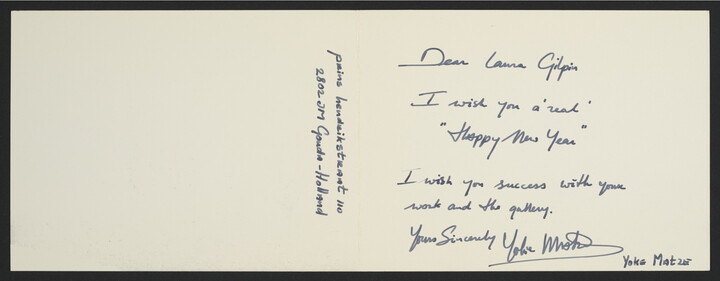 prins hendrikstraat 110
2802 JM Gouda-Holland
Dear Laura Gilpin
I wish you a 'real'
"Happy New Year"
I wish you success with your
work and the gallery.
Yours Sincerely Yoke Matze
Yoke Matze